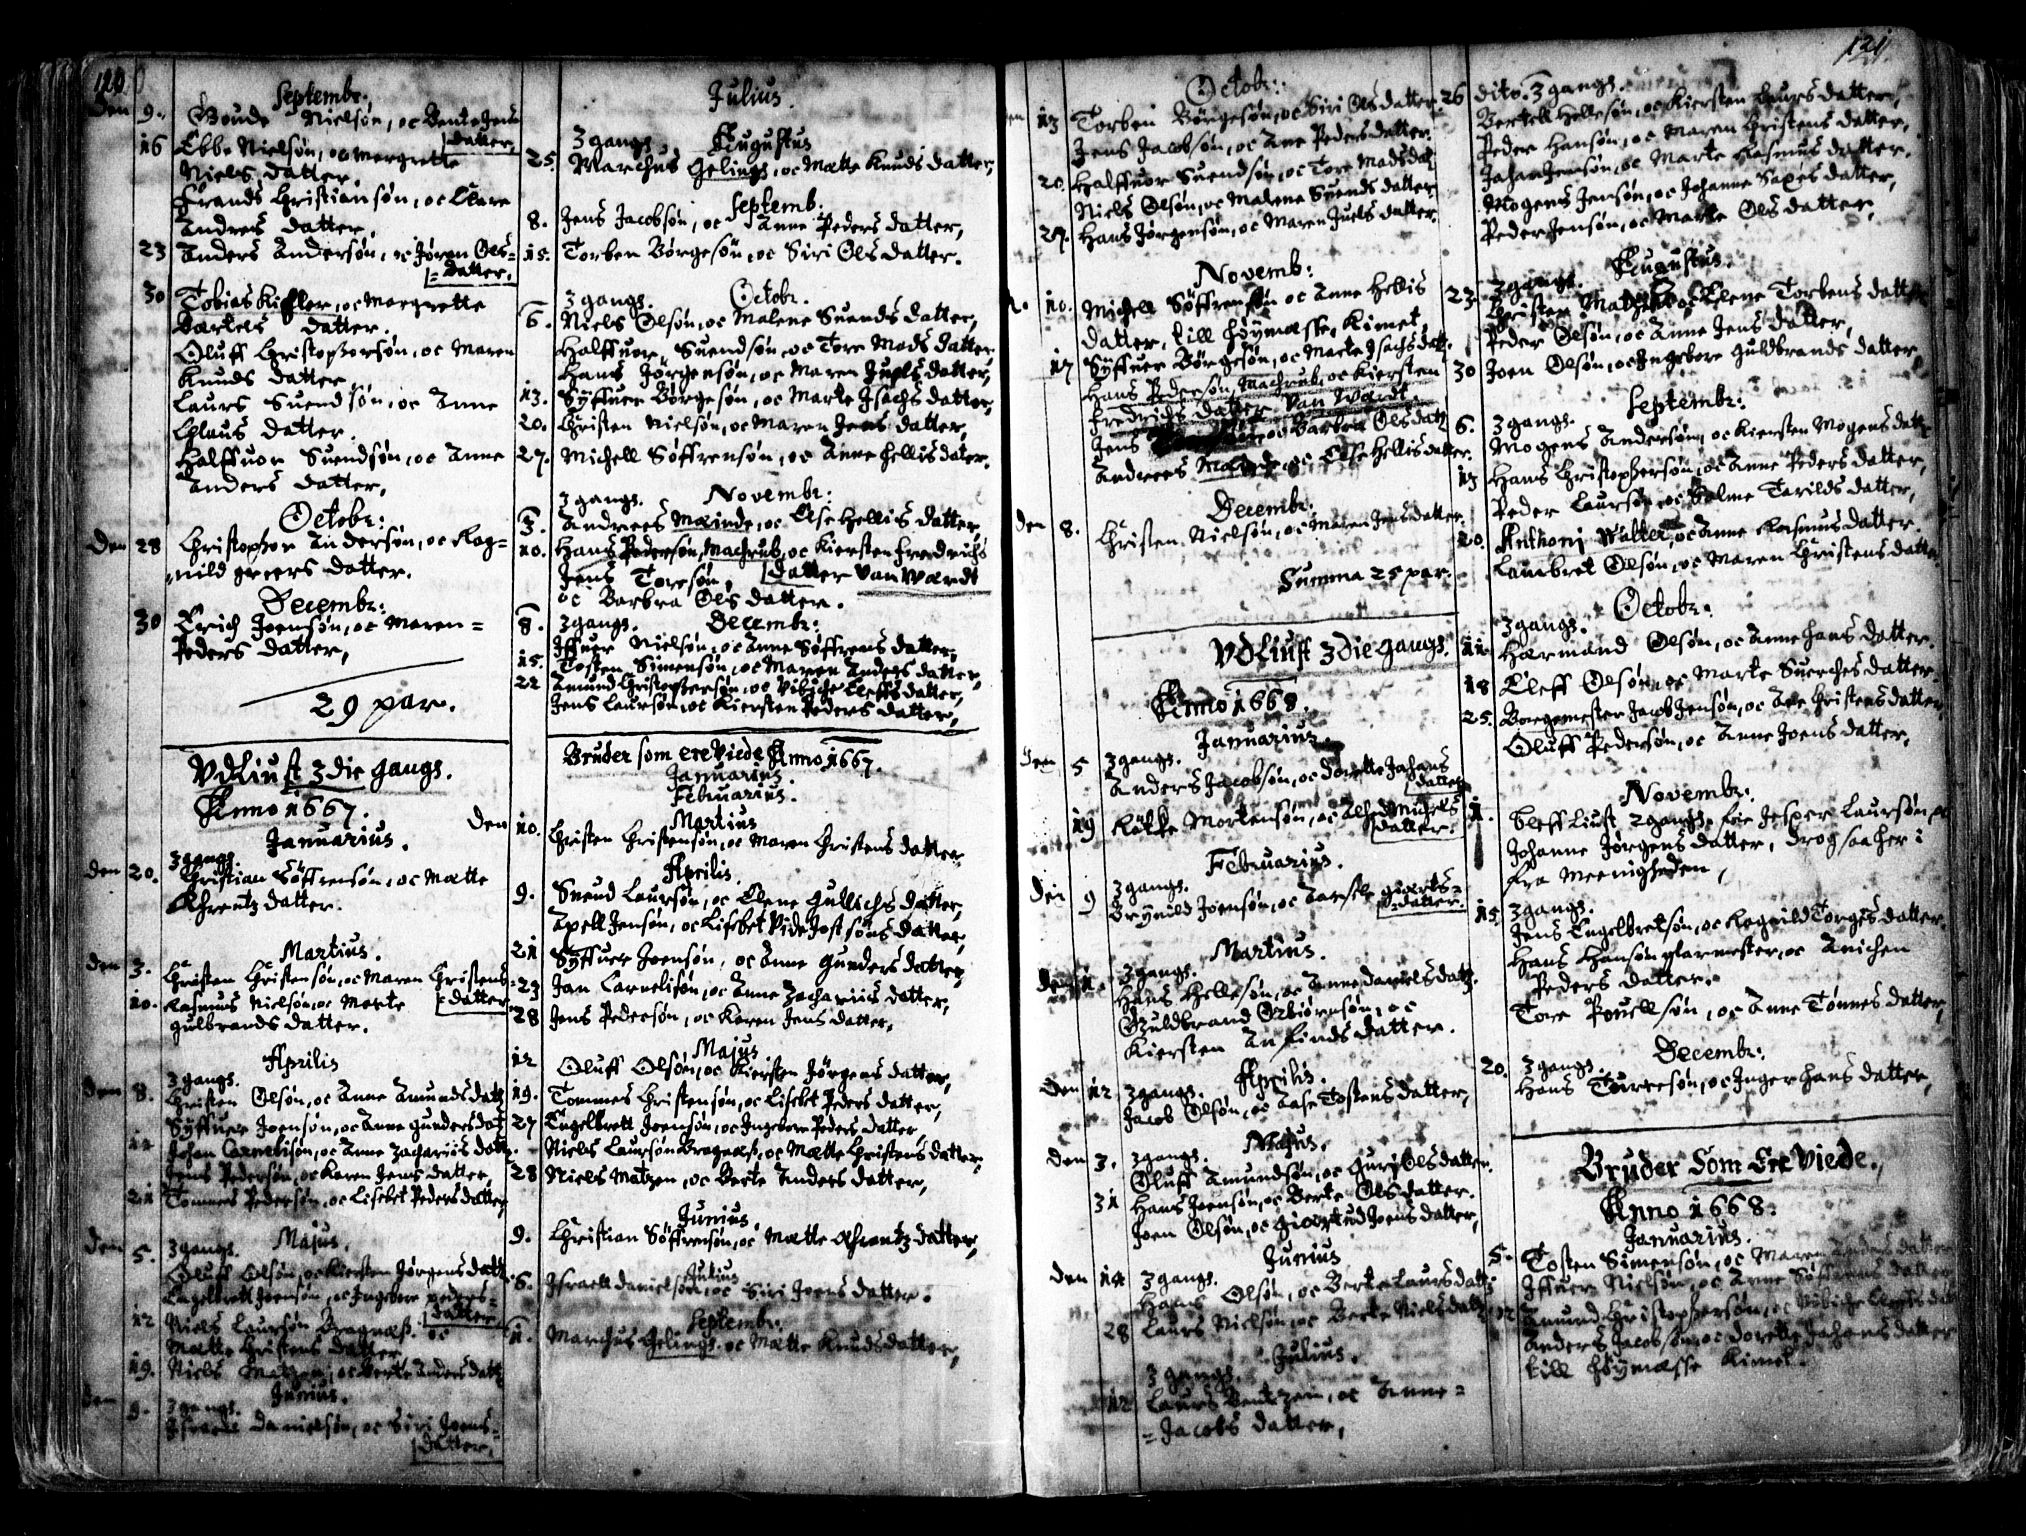 120
Septembr:
Den 9. Goude Nielsøn, oc Bente Jens
datter,
16 Ebbe Nielsøn, oc Margrette
Niels datter,
Frands Christiansøn, oc Clare
Andres datter,
23 Anders Andersøn, oc Jøren Ols=
=datter,
30 Tobias Kisler, oc Margrette
Bartels datter.
Oluff Christophersøn, oc Maren
Knuds datter,
Laurs Suendsøn, oc Anne
Claus datter.
Halffuor Suendsøn, oc Anne
Anders datter,
Octobr:
Den 28 Christopher Andersøn, oc Rag=
=nild datter.
Decembr:
30 Erich Joensøn, oc Maren=
Peders datter,
29 par.
Vdliust 3die gangs.
Anno 1667.
Januarius.
3 gangs.
den 20. Christian Søffrensøn, oc Mætte
Ahrentz datter.
Martius.
den 3. Christen Christensøn, oc Maren Christens
datter
10. Rasmus Nielsøn, oc Marte
Gulbrands datter.
Aprilis
3 gangs.
den 8. Christen Olsøn, oc Anne Amunds datt
Syffuer Joensøn, oc Anne Gunders dat
Johan Cornelisøn, oc Anne Zachariis datt
Jens Pedersøn, oc Karen Jens datter,
21 Tommes Pedersøn, oc Lisebet Peders datter,
Majus.
den 5. 3 gangs.
Oluff Olsøn, oc Kiersten Jørgens datt
Engelbrett Joensøn, oc Ingebore peders=
datter
12 Niels Laursøn Bragnæs. oc
Mætte Christens datter
19. Niels Matzen, oc Berte Anders datt
Junius.
9. 3 gangs.
Israell Danielsøn, oc Siri Joens=
datter,
Julius.
3 gangs. Augustus
25. Marchus Gelings, oc Mætte Knuds datter,
Septemb.
8. Jens Jacobsøn, oc Anne Peders datter,
15. Torben Børgesøn, oc Siri Ols datter.
3 gangs. Octobr.
6. Niels Olsøn, oc Malene Suends datter,
Halffuor Suendsøn, oc Tore Mads datter
Hans Jørgensøn, oc Maren Juels datter,
13. Syffuer Børgesøn, oc Marte Isachs datter,
20. Christen Nielsøn, oc Maren Jens datter,
27. Michell Søffrensøn, oc Anne Hellis dater.
3 gangs. Novembr:
3. Andrees Mæinde, oc Else Hellis datter
10. Hans Pedersøn, Machrub, oc Kiersten Fredrichs
datter van Wardt
Jens Toresøn,
oc Barbra Ols datter.
8. 3 gangs. Decembr:
Iffuer Nielsøn, oc Anne Søffrens datter,
15. Tosten Simensøn, oc Maren Anders datter,
22 Amund Christophersøn, oc Vibiche Eleffs datter,
Jens Laursøn, oc Kiersten Peders datter,
Bruder som ere Viede Anno 1667.
Januarius.
Februarius.
Martius
Den 10. Christen Christensøn, oc Maren Christens datter
Aprilis.
9. Suend Laursøn, oc Elene Gullichs datter,
Apell Jensøn, oc Lisebet Vide Jost søns datter,
21 Syffuer Joensøn, oc Anne Gunders datter,
23 Jan Cornelisøn, oc Anne Zachariis datter,
28 Jens Pedersøn, oc Karen Jens datter,
Majus
12 Oluff Olsøn, oc Kiersten Jørgens datter,
19. Tommes Christensøn, oc Lisebet Peders datter,
27 Engelbrett Joensøn, oc Ingebore Peders datter
Niels Laursøn Bragnæs, oc Mætte Christens datter,
28 Niels Matzen, oc Berte Anders datter,
Junius.
9. Christian Søffrensøn, oc Mætte Ahrentz datter,
Julius
6. Israell Danielsøn, oc Siri Joens datter.
Septembr.
11. Marchus Gelings, oc Mætte Knuds datter,
121.
Octobr:
13 Torben Børgesøn, oc Siri Ols datter.
Jens Jacobsøn, oc Ane Peders datter
20. Halffuor Suendsøn, oc Tore Mads dat
Niels Olsøn, oc Malene Suends datter
27. Hans Jørgensøn, oc Maren Juels datter.
Novemb:
10. Michell Søffrensøn oc Anne Hellis
datter, till Høymesse, Kimet
17 Syffuer Børgesøn, oc Marte Isachs datt.
Hans Pedersøn, Machrub, oc Kiersten
Fredrichs datter van Wardt.
Jens oc Barbra Ols datt
Andrees Mæinde, oc Else Hellis datter.
Decembr.
den 8. Christen Nielsøn, oc Maren Jens datter.
Summa 25 par.
Vdliust 3die gangs.
Anno 1668.
Januarius.
Den 5 3 gangs.
Anders Jacobsøn, oc Dorette Johans
datter
19 Køtke Mortensøn, oc Michels
datter.
Februarius.
den 9 3 gangs.
Brynild Joensøn, oc
=datter.
Martius.
den 1. 3 gangs.
Hans Hellesøn, oc Anne Daniels datt.
Guldbrand Osbiørnsøn, oc
Kiersten Anfinds datter.
Aprilis.
Den 12 3 gangs.
Jacob Olsøn, oc Aase Tostens datter,
Majus.
Den 3. 3 gangs.
Oluff Amundsøn, oc Guri Ols datter.
31 Hans Joensøn, oc Berte Ols datter.
Joen Olsøn, oc Giertrud Joens datter,
Junius
den 14 3 gangs.
Hans Olsøn, oc Berte Laurs datt.
28 Laurs Nielsøn, oc Berte Niels datt
Julius.
3 gangs.
12 Laurs Bentzen, oc Anne=
=Jacobs datter,
26 dito. 3 gangs.
Bertell Hellesøn, oc Kiersten Laurs datter,
Peder Hansøn, oc Maren Christens datter,
Johan Jensøn, oc Marte Rasmus datter.
Mogens Jensøn, oc Johanne Saxes datter,
Peder Jensøn, oc Marte Ols datter,
Augustus.
3 gangs.
23. Christen Matzen, oc Elene Torbens datter
Peder Olsøn, oc Anne Jens datter,
30 Joen Olsøn, oc Ingebore Guldbrands datter
Septembr:
6. 3 gangs.
Mogens Andersøn, oc Kiersten Mogens datt.
13 Hans Christophersøn, oc Anne Peders datter,
Peder Laursøn, oc Tarilds datter,
20. Anthoni Walter, oc Anne Rasmus datter.
Lambret Olsøn, oc Maren Christens datter
Octobr:
3 gangs.
11. Harmand Olsøn, oc Anne Hans datter.
18 Eleff Olsøn, oc Marte Suerches datter.
25. Borgemester Jacob Jensøn, oc Ane Christens datter,
Oluff Pedersøn, oc Anne Joens datter,
Novembr:
1. bleff liust 2 gangs. for Jesper Laursøn, oc
Johanne Jørgens datter, drog saa her i
fra Meenigheden,
15. 3 gangs.
Jens Engelbretsøn, oc Ragnild Torgis datter.
Hans Hansøn glarmester, oc Anichen
Peders datter.
Tore Pouellsøn, oc Anne Tønnes datter,
Decembr:
20. 3 gangs.
Hans Tourresøn, oc Inger Hans datter,
Bruder Som Ere Viede.
Anno 1668.
Januarius.
5. Tosten Simensøn, oc Maren Anders datter
Iffuer Nielsøn, oc Anne Søffrens datter
12 Amund Christophersøn, oc Vibiche Eleffs dat
Anders Jacobsøn, oc Dorette Johans datter
till Høymesse Kimet.